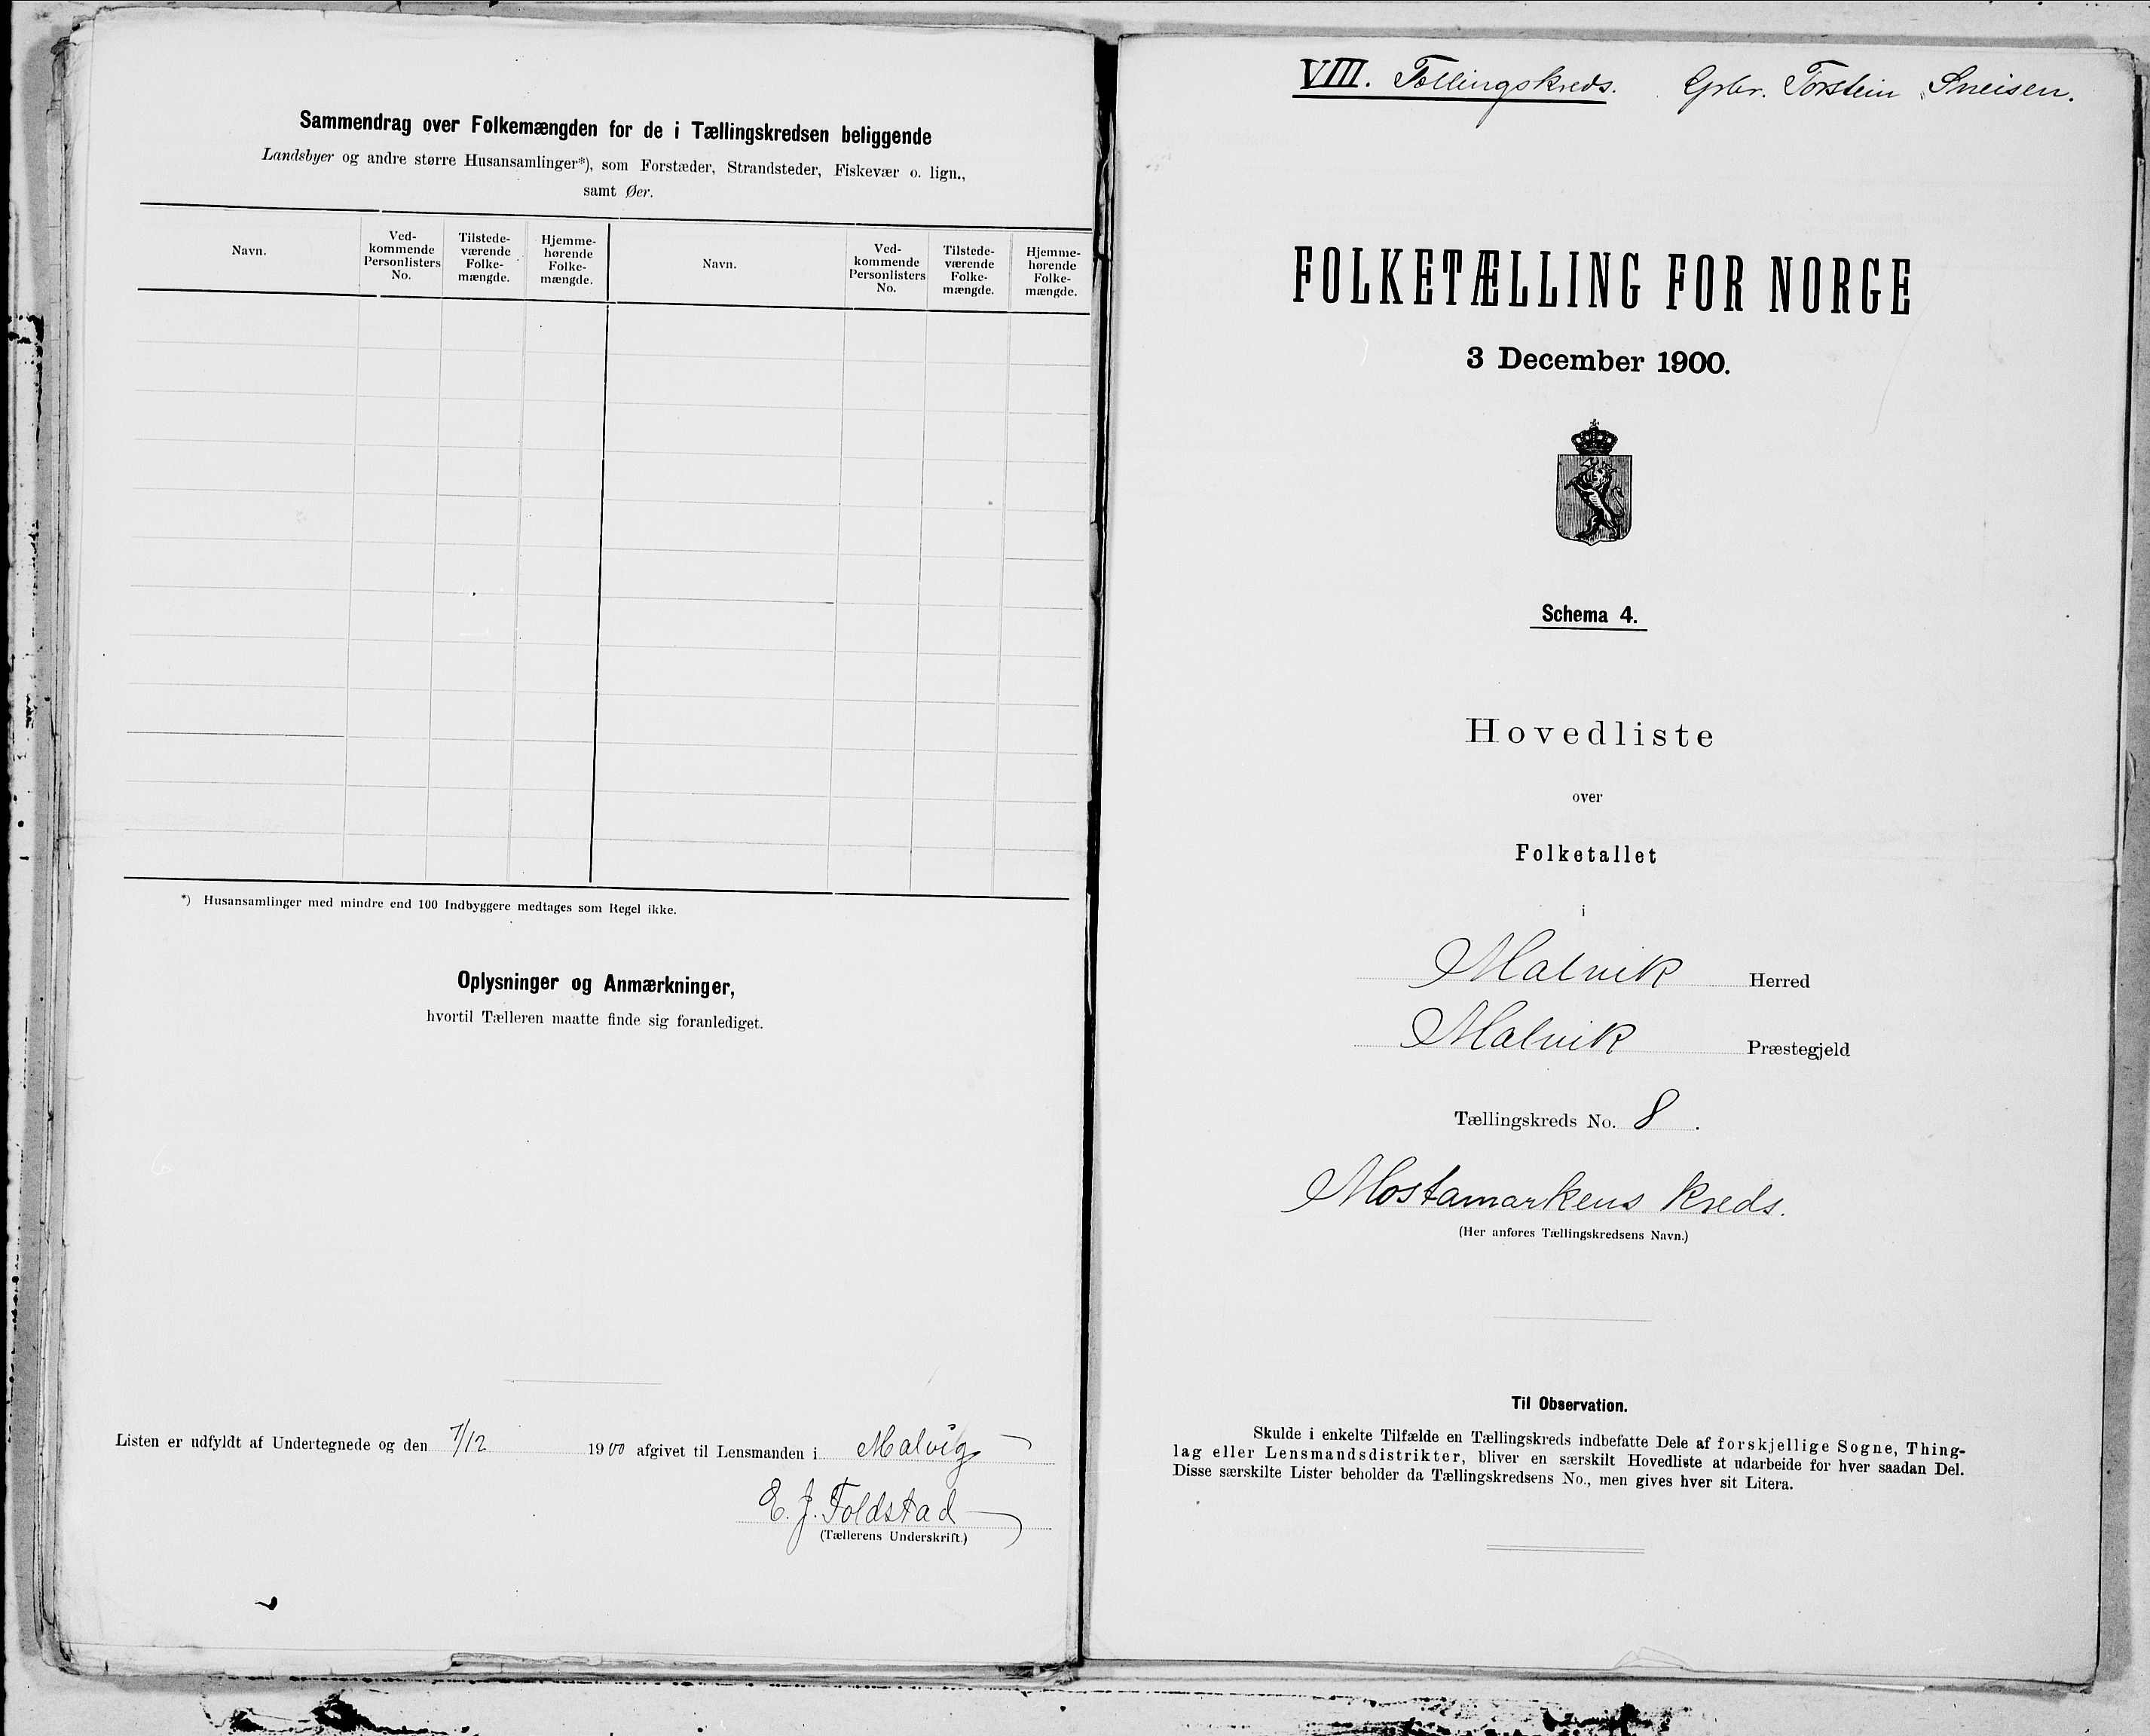 Sammendrag over Folkemængden for de i Tællingskredsen beliggende
Landsbyer og andre større Husansamlinger*), som Forstæder, Strandsteder, Fiskevær o. lign.,
samt Øer.
Navn.
Ved-
kommende
Personlisters
No.
Tilstede-
værende
Folke-
mængde.
Hjemme-
hørende
Folke-
mængde.
Navn.
Ved-
kommende
Personlisters
No.
Tilstede-
værende
Folke-
mængde.
Hjemme-
hørende
Folke-
mængde.
*) Husansamlinger med mindre end 100 Indbyggere medtages som Regel ikke.
Oplysninger og Anmærkninger,
hvortil Tælleren maatte finde sig foranlediget.
Listen er udfyldt af Undertegnede og den 7/12 1900 afgivet til Lensmanden i Malvig
E. J. Foldstad
(Tællerens Underskrift.)
VIII. Tællingskreds. Gbr. Torstein Sneisen.
FOLKETÆLLING FOR NORGE
3 December 1900.
Schema 4.
Hovedliste
over
Folketallet
i
Malvik Herred
Malvik Præstegjeld
Tællingskreds No. 8.
Mostamarkens Kreds.
(Her anføres Tællingskredsens Navn.)
Til Observation.
Skulde i enkelte Tilfælde en Tællingskreds indbefatte Dele af forskjellige Sogne, Thing-
lag eller Lensmandsdistrikter, bliver en særskilt Hovedliste at udarbeide for hver saadan Del.
Disse særskilte Lister beholder da Tællingskredsens No., men gives hver sit Litera.